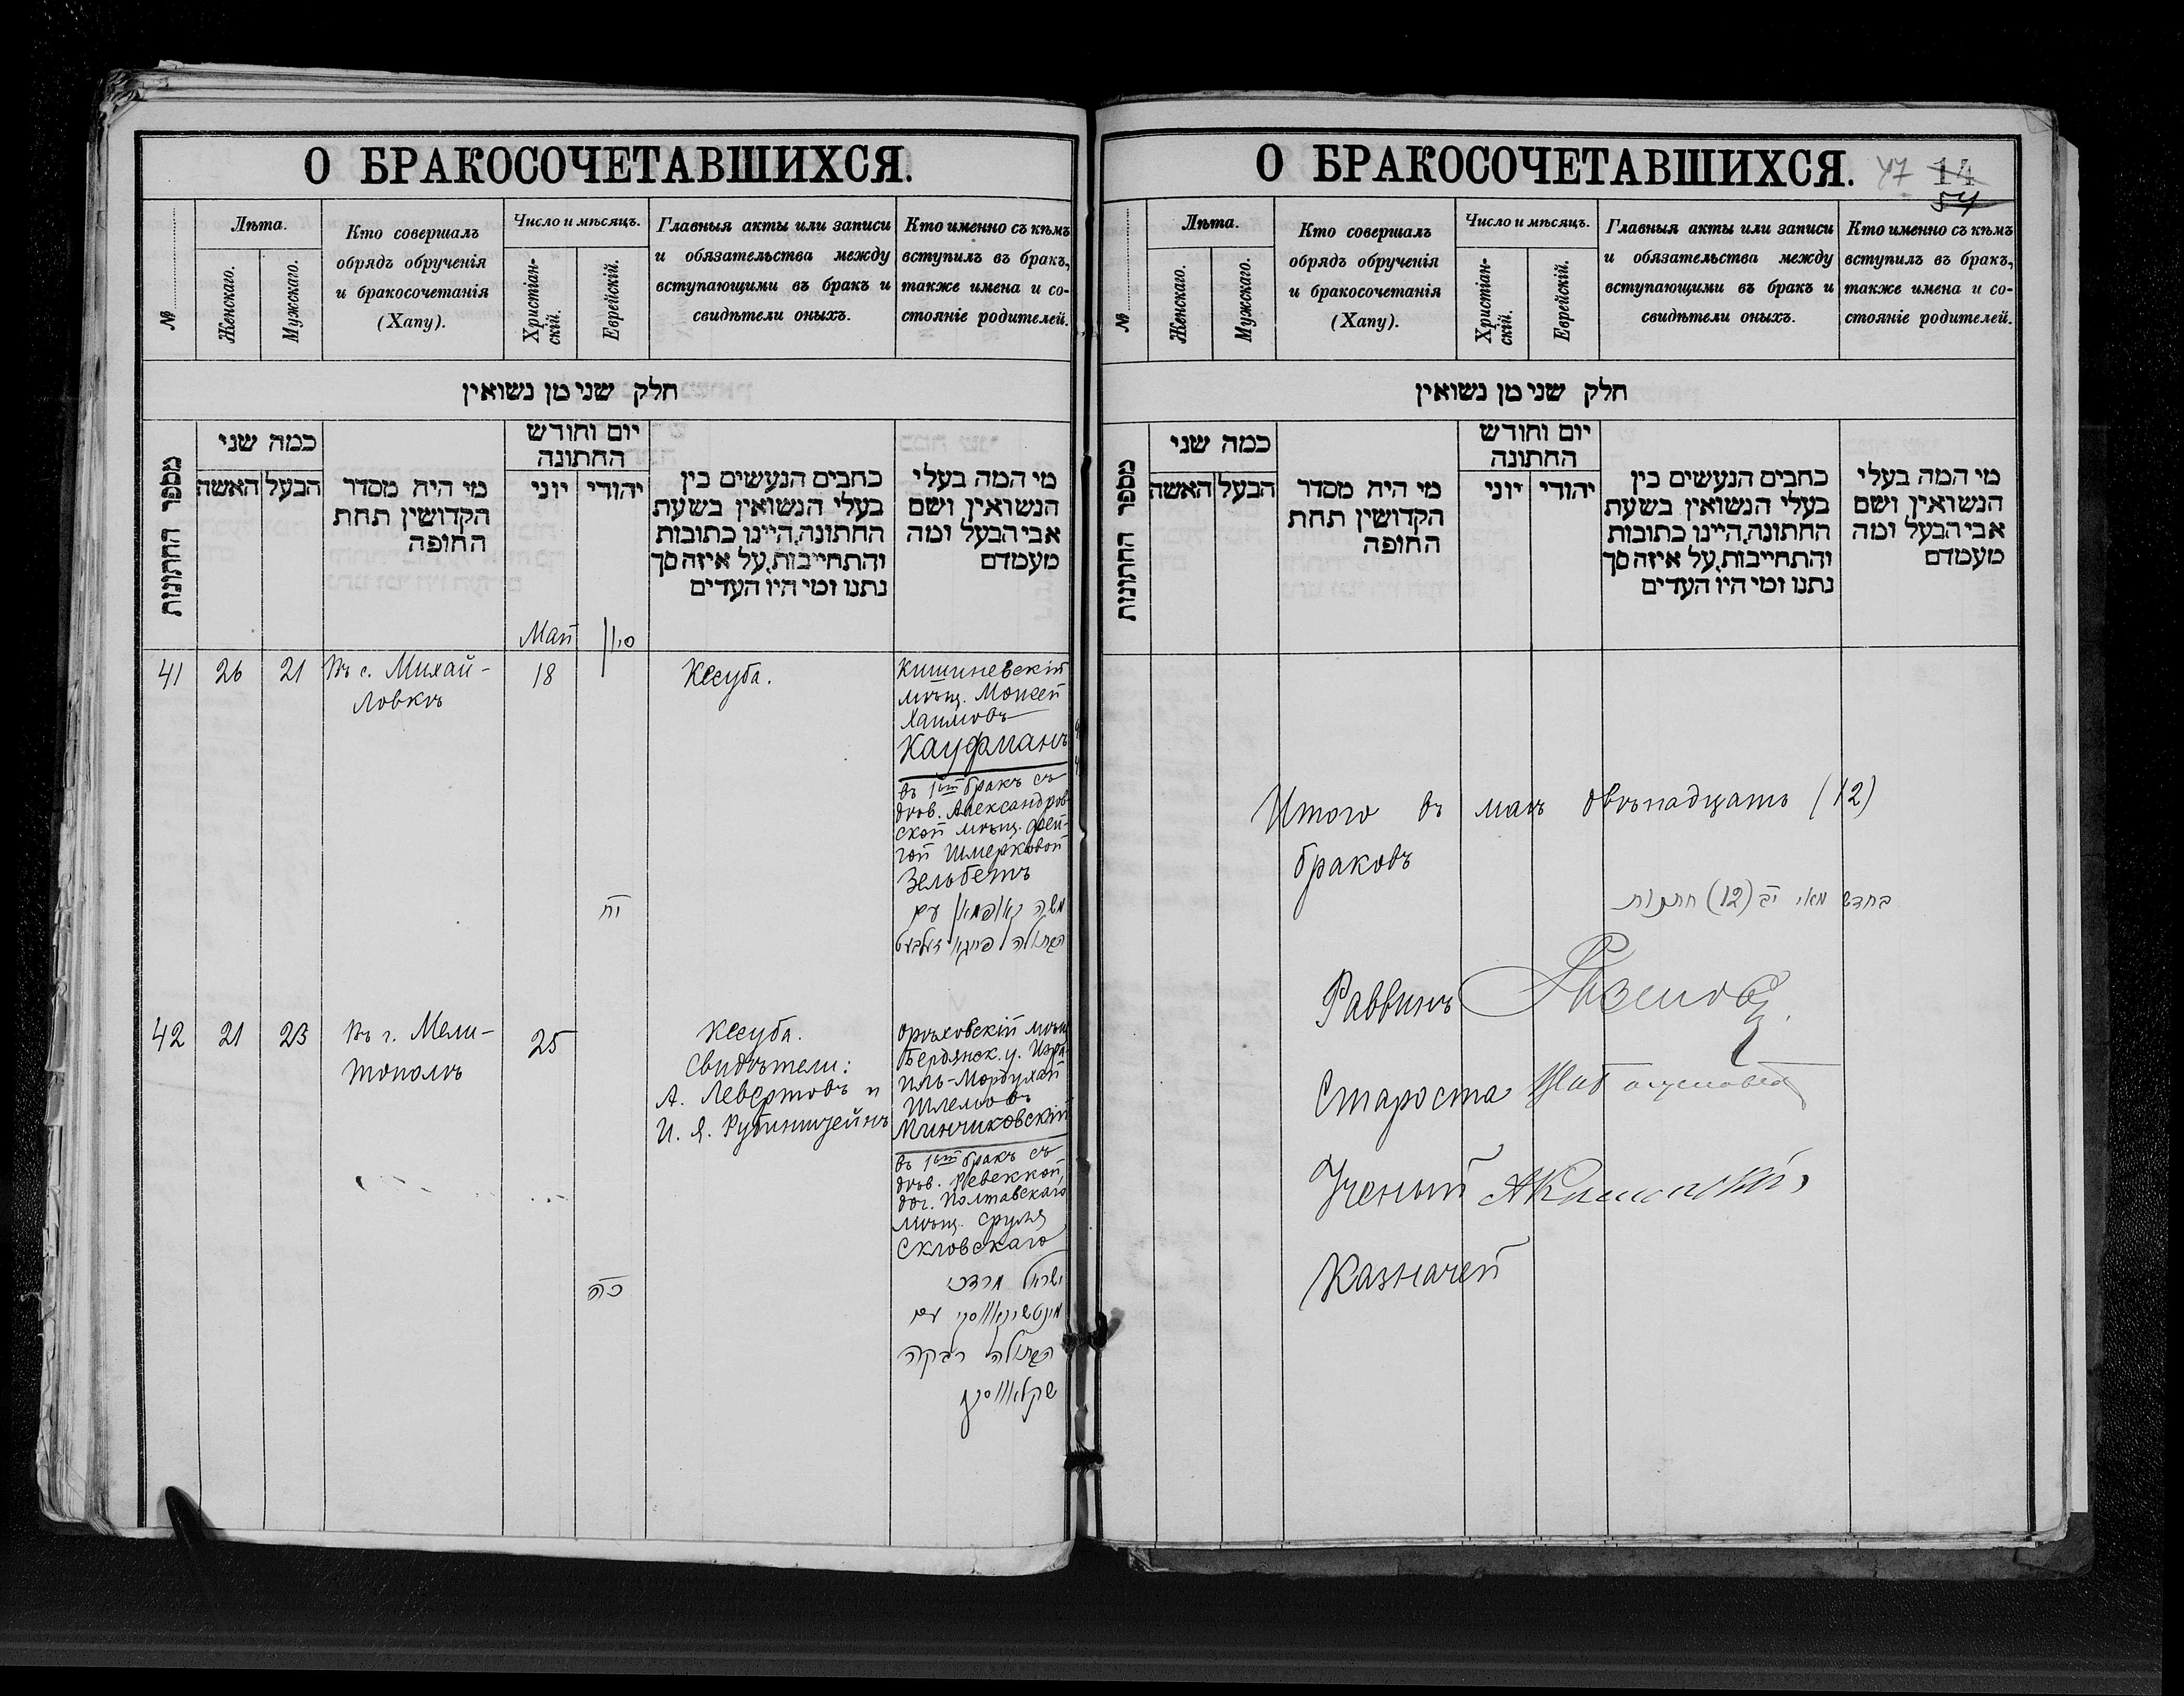 О БРАКОСОЧЕТАВШИХСЯ.
№
Лѣта.
Женскаго.
Мужскаго.
Кто совершалъ
обрядъ обрученія
и бракосочетанія
(Хапу).
Число и мѣсяцъ.
Христіан-
скій.
Еврейскій.
Главныя акты или записи
и обязательства между
вступающими въ бракъ и
свидѣтели оныхъ.
Кто именно съ кѣмъ
вступилъ въ бракъ,
также имена и со-
стояніе родителей.
חלק שני מן נשואין
מספר החתונות
כמה שני
האשה
הבעל
מי היה מסדר
הקדושין תחת
החופה
יום וחודש
החתונה
יוני
יהודי
כתבים הנעשים בין
בעלי הנשואין בשעת
החתונה, היינו כתובות
והתחייבות, על איזה סך
נתנו ומי היו העדים
מי המה בעלי
הנשואין ושם
אבי הבעל ומה
מעמדם
Май
סיון
41
26
21
Въ с. Михай-
ловкѣ
18
יח
Кесуба.
Кишиневскій
мѣщ. Моисей
Хаимовъ
Кауфманъ
въ 1ый бракъ съ
дѣв. Александров
ской мѣщ. Фей-
гой Шмерковой
Зельбетъ
משה קאופמאן עם
הבתולה פייגא זעלבעט
42
21
23
Въ г. Мели-
тополѣ
25
כה
Кесуба.
Свидѣтели:
А. Левертовъ и
И. Я. Рубинштейнъ
Орѣховскій мѣщ
Бердянск. у. Изра-
иль-Мордухай
Шлемовъ
Минчиковскій
въ 1ый бракъ съ
дѣв. Ревеккой,
доч. Полтавскаго
мѣщ. Сруля
Скловскаго
ישראל מרדכי
מינטשיקאווסקי עם
הבתולה רבקה
שקלאווסקי
О БРАКОСОЧЕТАВШИХСЯ.
47 14
54
№
Лѣта.
Женскаго.
Мужскаго.
Кто совершалъ
обрядъ обрученія
и бракосочетанія
(Хапу).
Число и мѣсяцъ.
Христіан-
скій.
Еврейскій.
Главныя акты или записи
и обязательства между
вступающими въ бракъ и
свидѣтели оныхъ.
Кто именно съ кѣмъ
вступилъ въ бракъ,
также имена и со-
стояніе родителей.
חלק שני מן נשואין
מספר החתונות
כמה שני
האשה
הבעל
מי היה מסדר
הקדושין תחת
החופה
יום וחודש
החתונה
יוני
יהודי
כתבים הנעשים בין
בעלי הנשואין בשעת
החתונה, היינו כתובות
והתחייבות, על איזה סך
נתנו ומי היו העדים
מי המה בעלי
הנשואין ושם
אבי הבעל ומה
מעמדם
Итого въ маѣ двѣнадцать (12)
браковъ
בחדש מאי יב (12) חתונות
Раввинъ
Староста
Ученый
Казначей